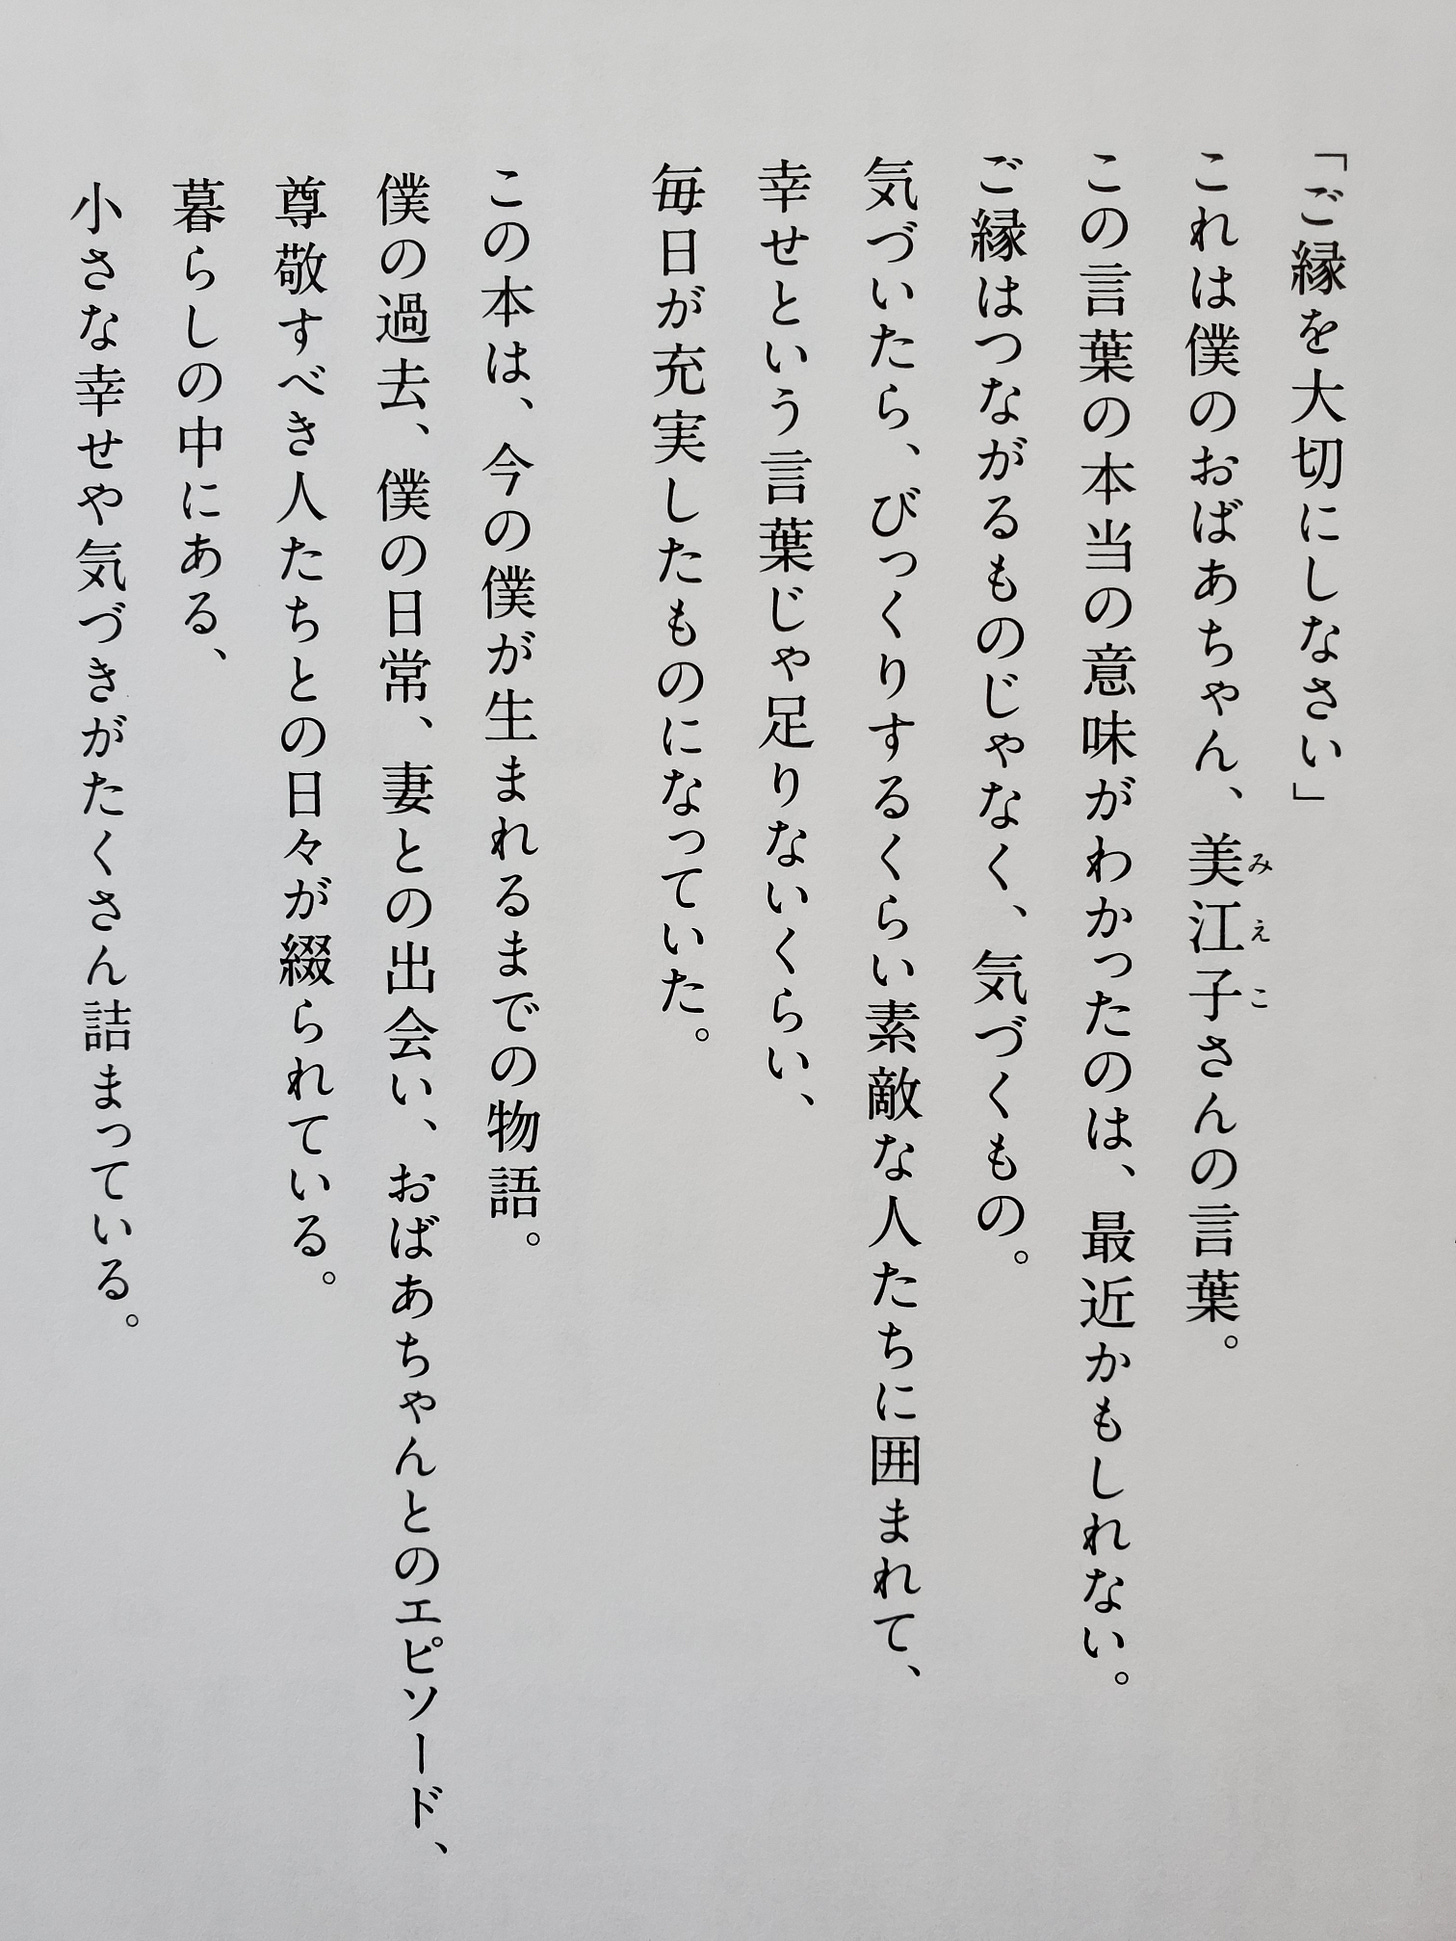 「ご縁を大切にしなさい」
これは僕のおばあちゃん、美江子さんの言葉。
みえこ
この言葉の本当の意味がわかったのは、最近かもしれない。
ご縁はつながるものじゃなく、気づくもの。
気づいたら、びっくりするくらい素敵な人たちに囲まれて、
幸せという言葉じゃ足りないくらい、
毎日が充実したものになっていた。
この本は、今の僕が生まれるまでの物語。
僕の過去、僕の日常、妻との出会い、おばあちゃんとのエピソード、
尊敬すべき人たちとの日々が綴られている。
暮らしの中にある、
小さな幸せや気づきがたくさん詰まっている。